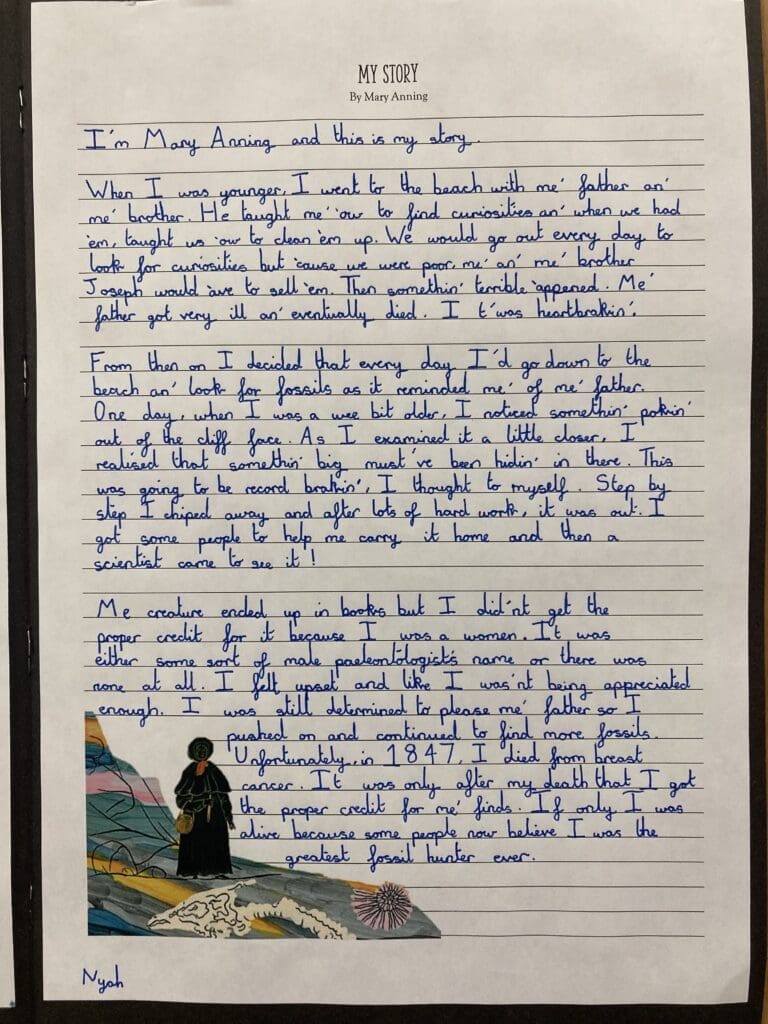 MY STORY
By Mary Anning
I'm Mary Anning and this is my story.
When I was younger, I went to the beach with me' father an'
me' brother. He taught me' 'ow to find curiosities an' when we had
'em, taught us 'ow to clean 'em up. We would go out every day to
look for curiosities but 'cause we were poor, me' an' me' brother
Joseph would 'ave to sell 'em. Then somethin' terrible 'appened. Me'
father got very ill an' eventually died. I t'was heartbrakin'.
From then on I decided that every day I'd go down to the
beach an' look for fossils as it reminded me' of me' father.
One day, when I was a wee bit older, I noticed somethin' pokin'
out of the cliff face. As I examined it a little closer, I
realised that somethin' big must've been hidin' in there. This
was going to be record brakin', I thought to myself. Step by
step I chiped away and after lots of hard work, it was out. I
got some people to help me carry it home and then a
scientist came to see it!
Me creature ended up in books but I did'nt get the
proper credit for it because I was a women. It was
either some sort of male paeleontologist's name or there was
none at all. I felt upset and like I was'nt being appreciated
enough. I was still determined to please me' father so I
pushed on and continued to find more fossils.
Unfortunately, in 1847, I died from breast
cancer. It was only after my death that I got
the proper credit for me' finds. If only I was
alive because some people now believe I was the
greatest fossil hunter ever.
Nyah